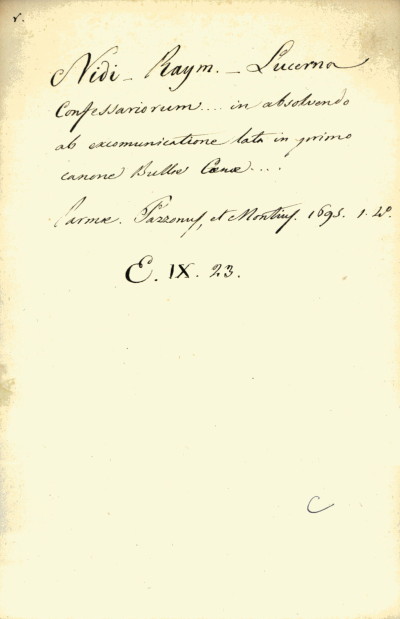 v.
Nidi - Raym. - Lucerna
Confessariorum .... in absolvendo
ab excomunicatione lata in primo
canone Bullæ Cœnæ ....
Parmæ. Pazzonus, et Montius. 1695. 1. 4°.
E. IX. 23.
C